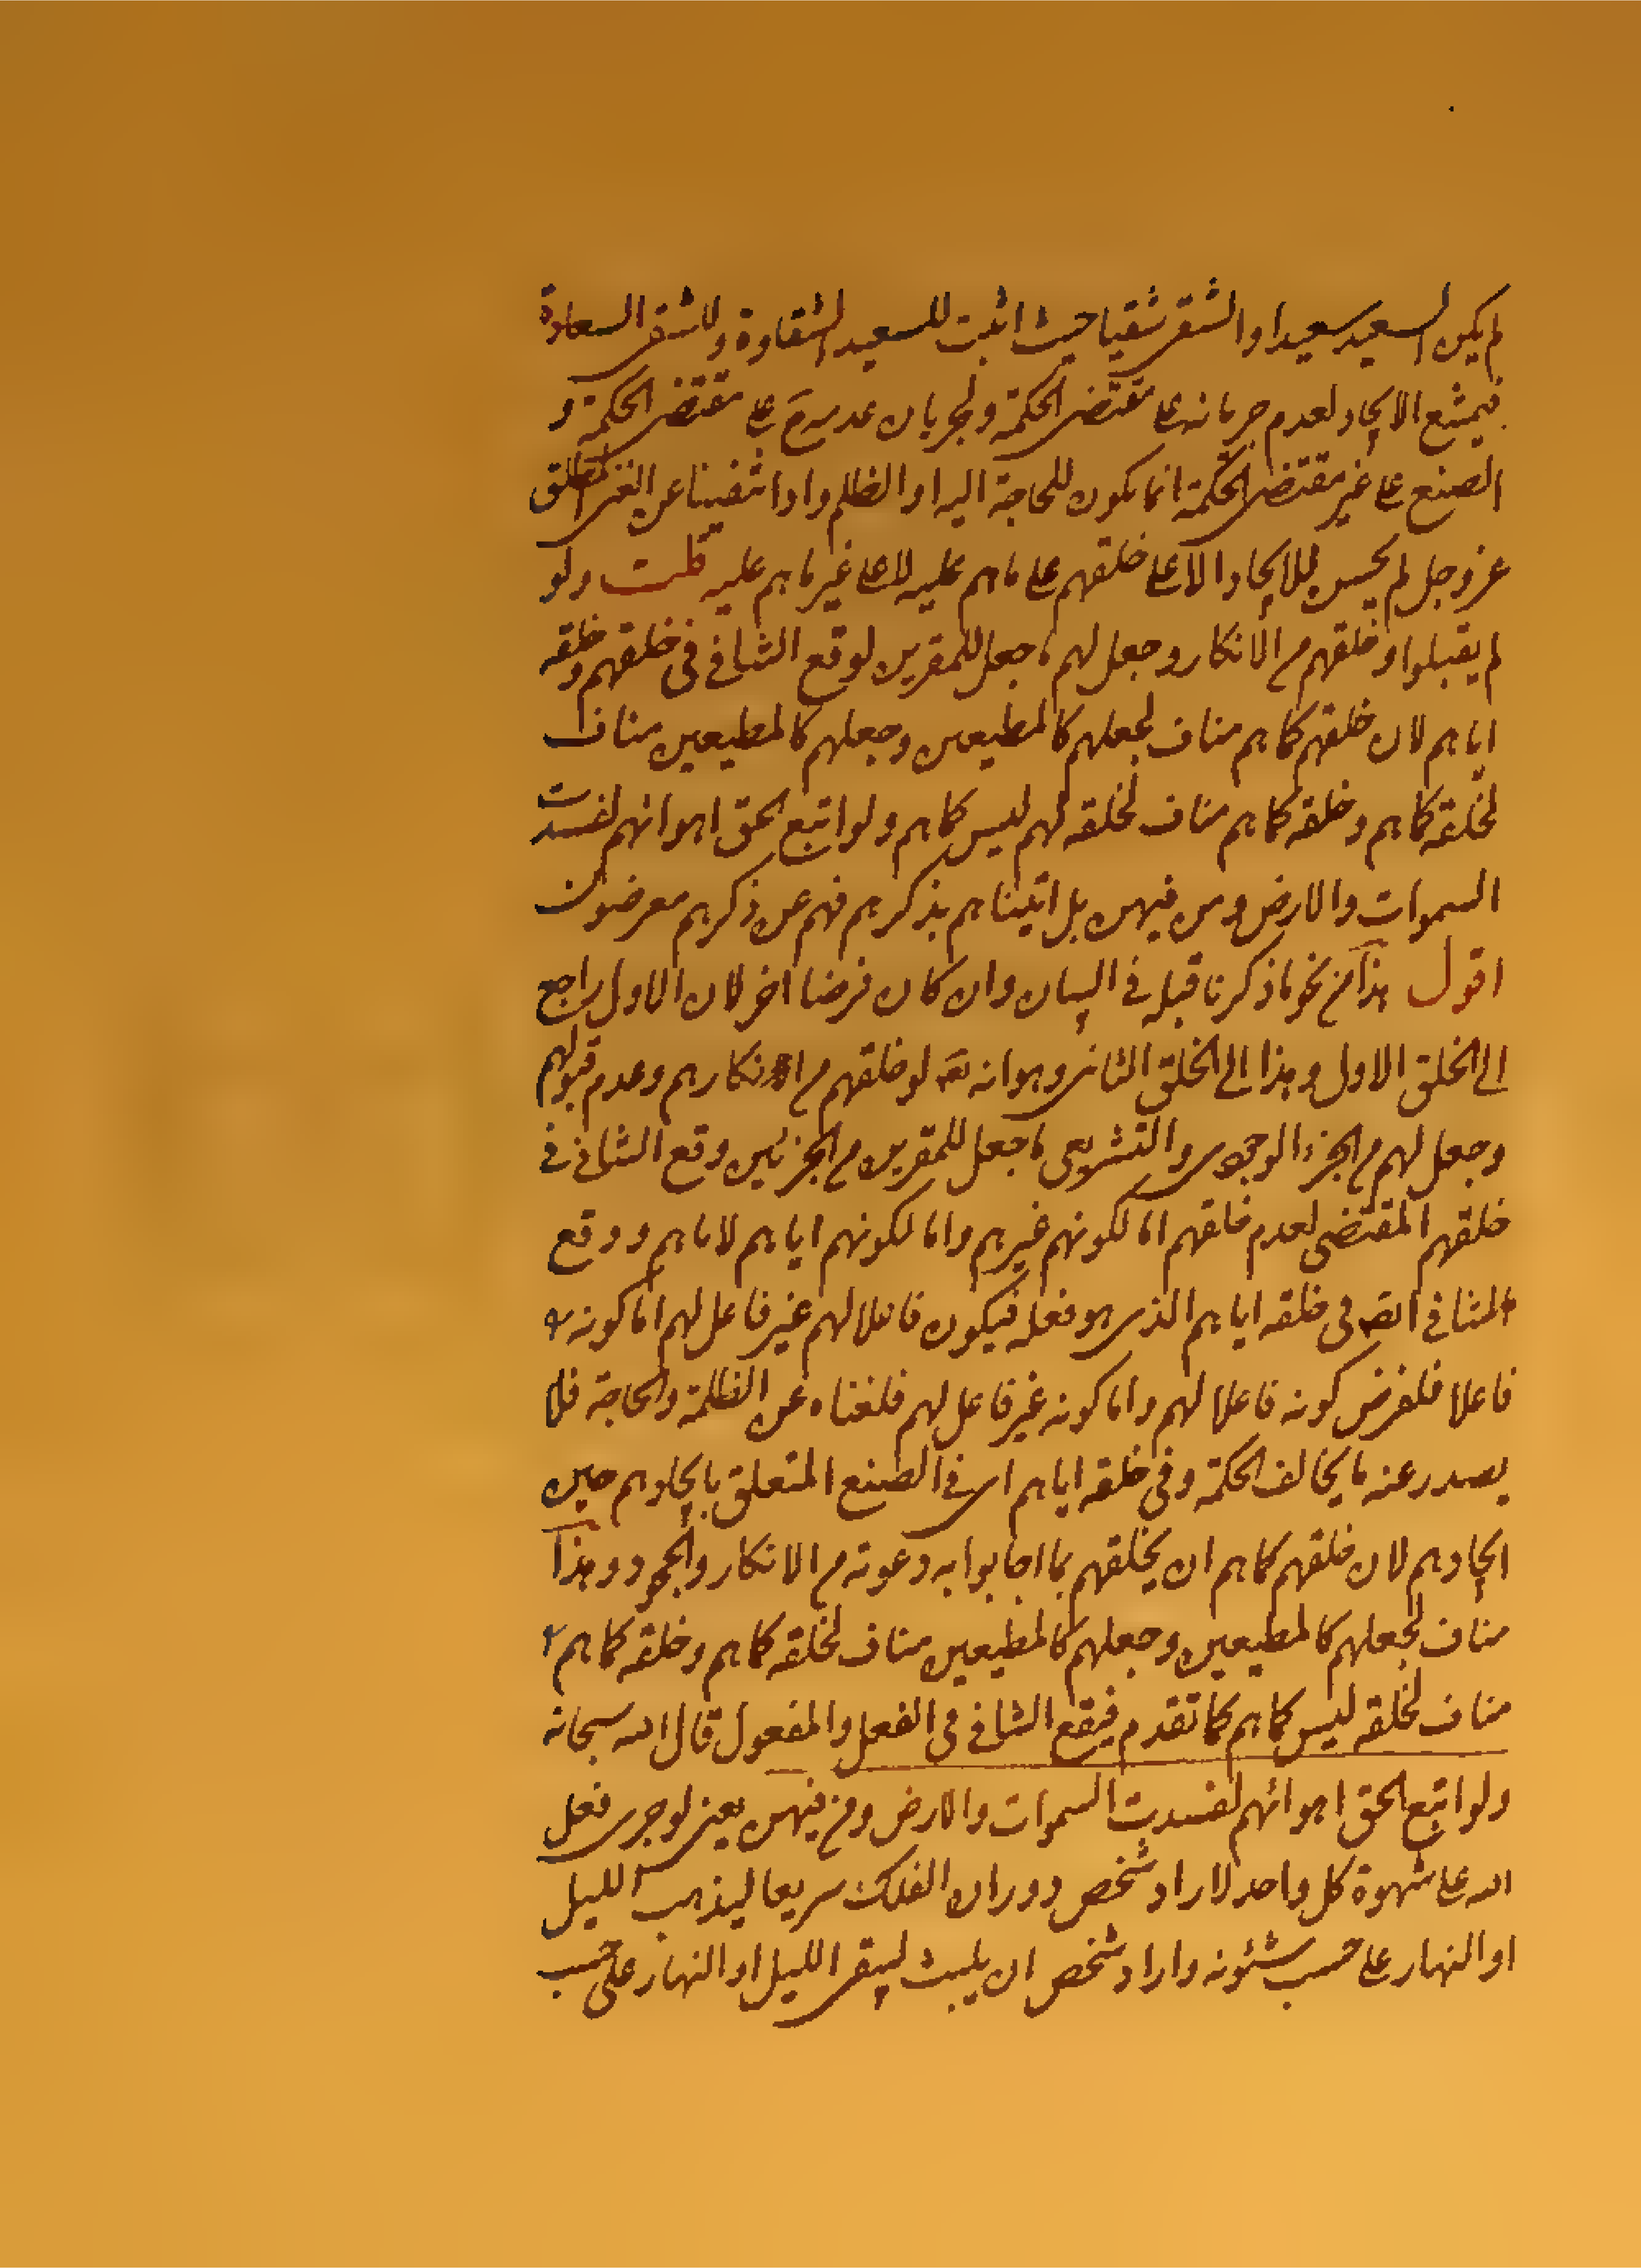 لم يكن السعيد سعيدا والشقى شقيا حيث اثبت للسعيد الشقاوة وللشقى السعادة
فيمتنع الايجاد لعدم جريانه على مقتضى الحكمة ولجريان عدمه على مقتضى الحكمة و
الصنع على غير مقتضى الحكمة انما يكون للحاجة اليه او الظلم واذا انتفينا عن الغنى المطلق
عز وجل لم يحسن للايجاد الا على خلقهم على ما هم عليه لا على غير ما هم عليه قلت ولو
لم يقبلوا وخلقهم مع الانكار وجعل لهم ما جعل للمقرين لوقع التنافى فى خلقهم وخلقه
اياهم لان خلقهم كما هم مناف لجعلهم كالمطيعين وجعلهم كالمطيعين مناف
لخلقه كما هم وخلقه كما هم مناف لخلقه لهم ليس كما هم ولو اتبع الحق اهوائهم لفسدت
السموات والارض ومن فيهن بل اتيناهم بذكرهم فهم عن ذكرهم معرضون
اقول هذا من نحو ما ذكرنا قبله فى البيان وان كان فرضا اخر لان الاول راجع
الى الخلق الاول وهذا الى الخلق الثانى وهو انه تعه لو خلقهم مع انكارهم وعدم قبولهم
وجعل لهم مع الجزء الوجودى والتشريعى ما جعل للمقرين مع الجزئين وقع التنافى فى
خلقهم المقتضى لعدم خلقهم اما لكونهم غيرهم واما لكونهم اياهم لاماهم ووقع
المنافى ايضه فى خلقه اياهم الذى هو فعله فيكون فاعلا لهم غير فاعل لهم اما كونه
فاعلا فلفرض كونه فاعلا لهم واما كونه غير فاعل لهم فلغناه عن الظلمة والحاجة فلا
يصدر عنه ما يخالف الحكمة وفى خلقه اياهم اى فى الصنع المتعلق بايجادهم حين
ايجادهم لان خلقهم كما هم ان يخلقهم بما اجابوا به دعوته من الانكار والجحود وهذا
مناف لجعلهم كالمطيعين وجعلهم كالمطيعين مناف لخلقه كما هم وخلقه كما هم
مناف لخلقه ليس كما هم كما تقدم فيقع التنافى فى الفعل والمفعول قال الله سبحانه
ولو اتبع الحق اهوائهم لفسدت السموات والارض ومن فيهن يعنى لو جرى فعل
الله على شهوة كل واحد لاراد شخص دوران الفلك سريعا ليذهب الليل
او النهار على حسب شئونه واراد شخص ان يلبث ليبقى الليل او النهار على حسب